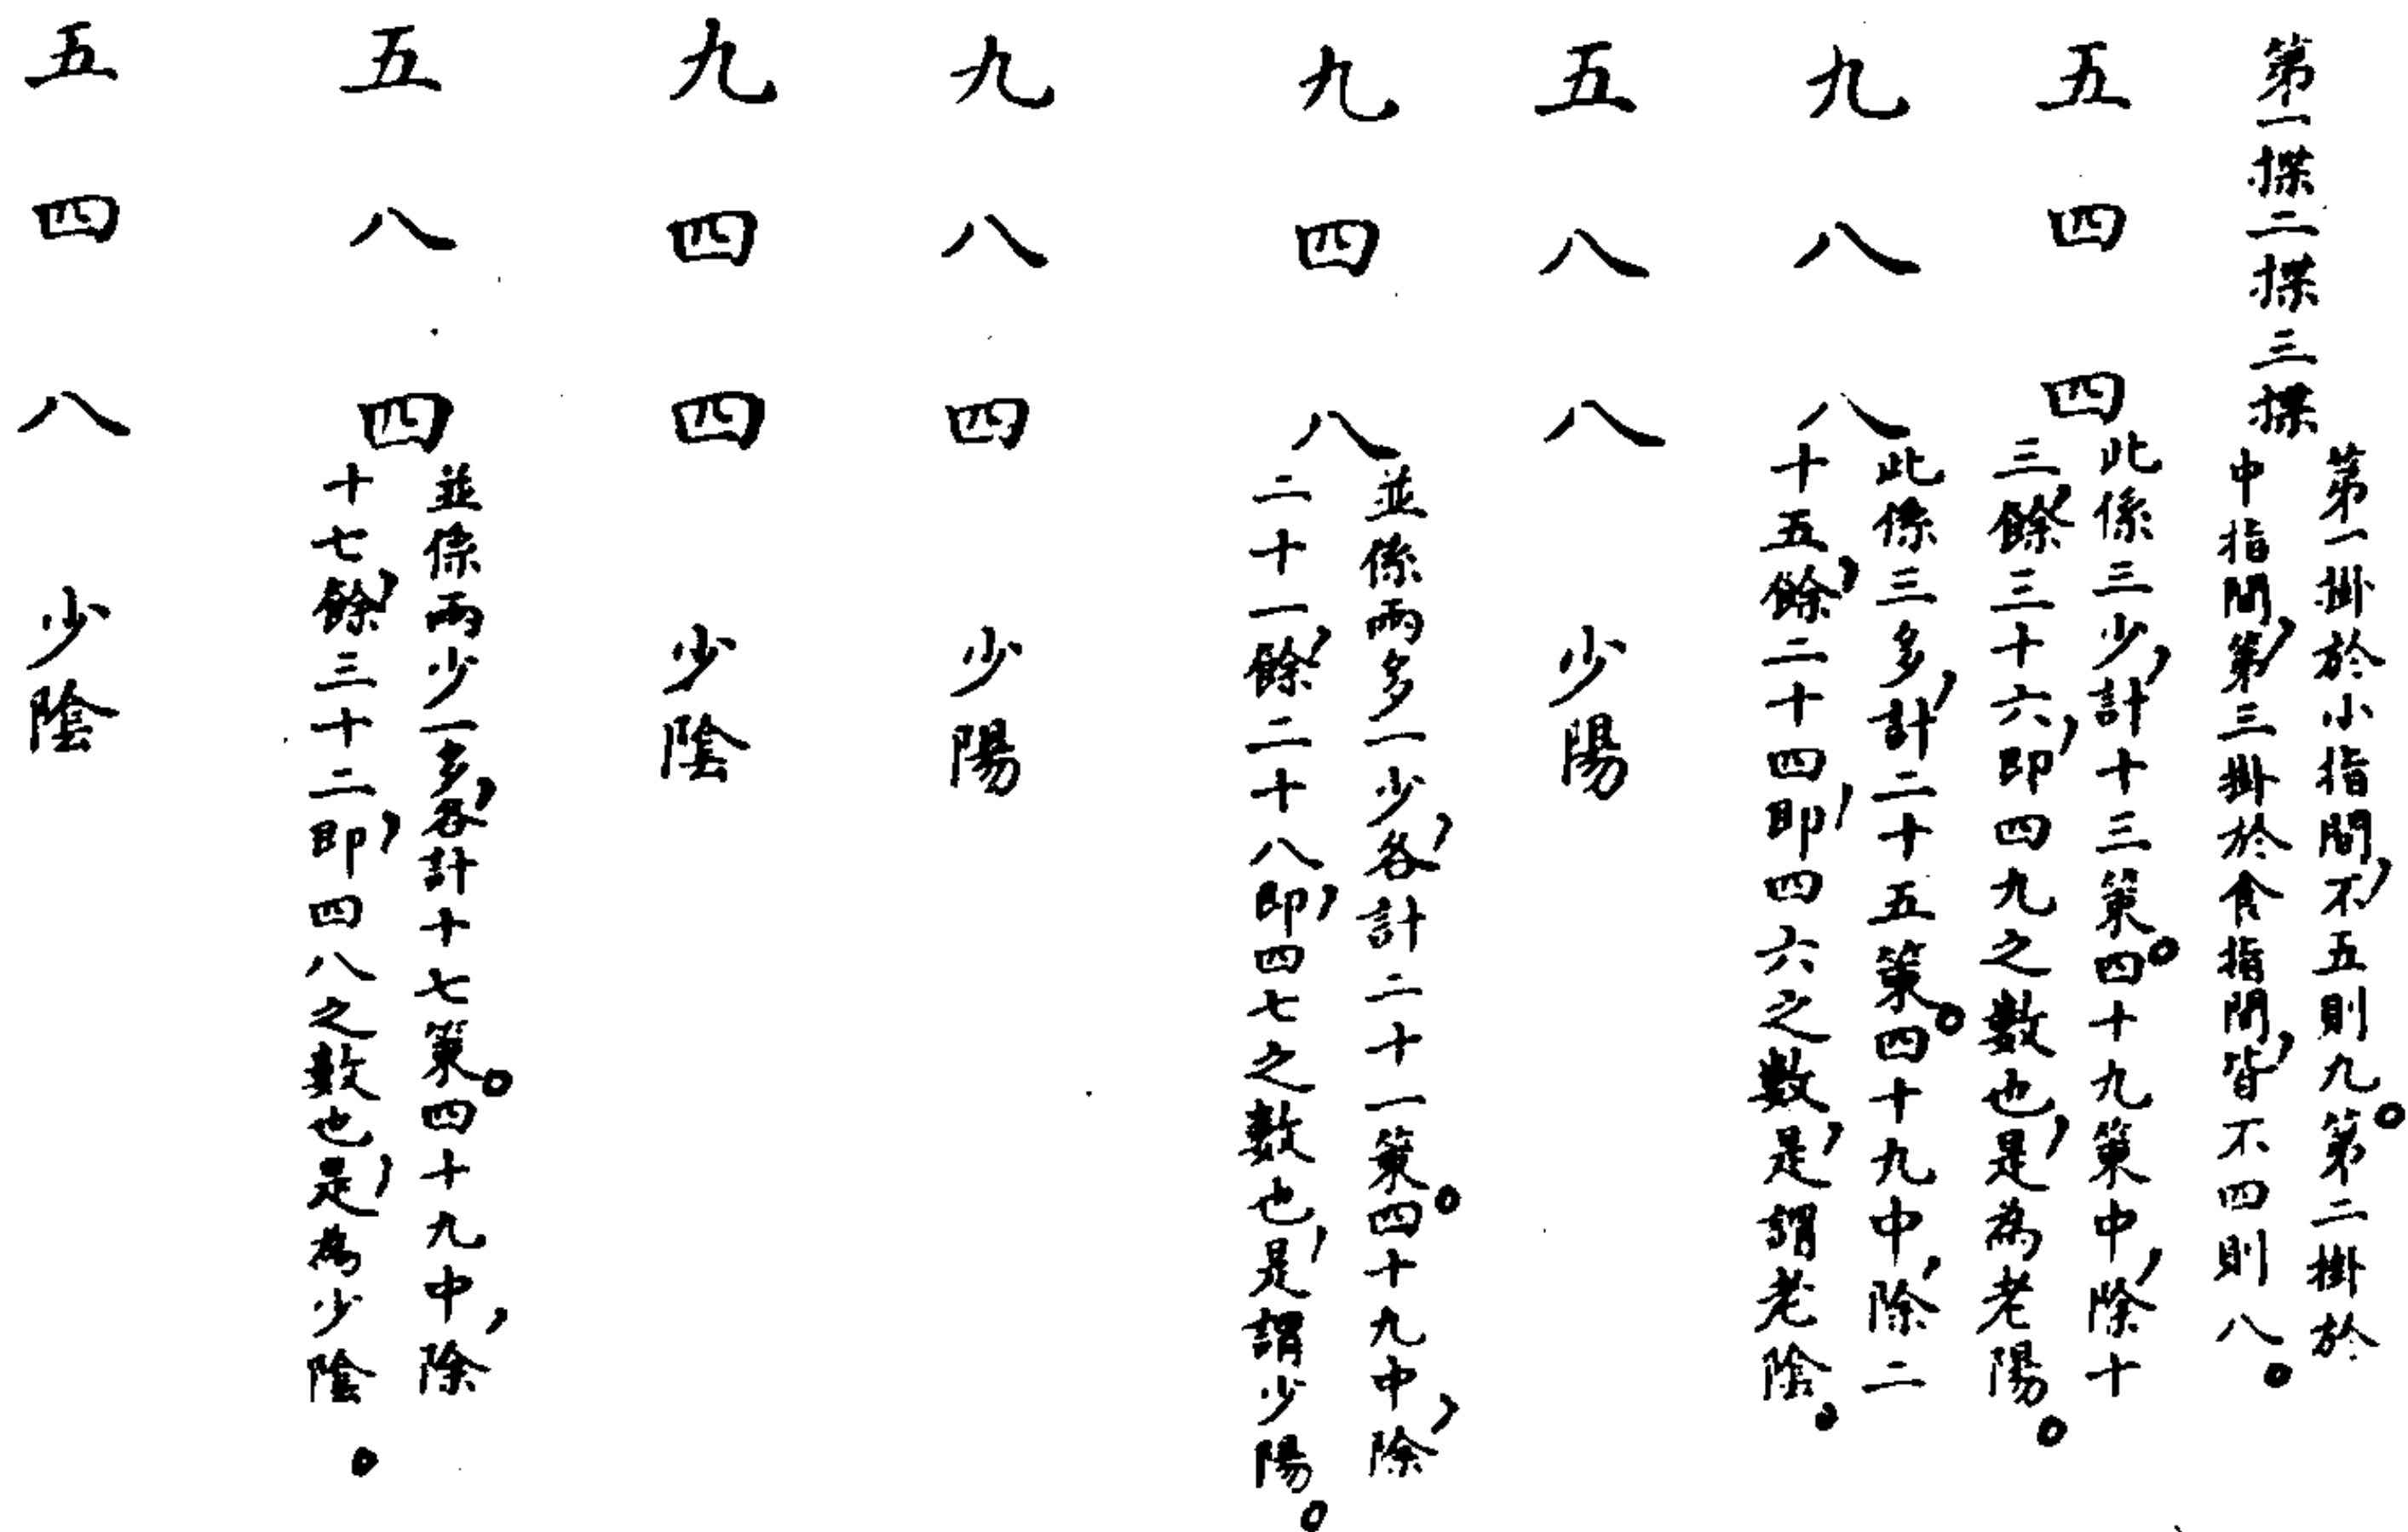 第一揲二揲三揲
第一掛於小指間，不五則九。第二掛於
中指間，第三掛於食指間，皆不四則八。
五 四 四
此係三少，計十三策。四十九策中，除十
三，餘三十六，即四九之數也，是為老陽。
九 八 八
此係三多，計二十五策。四十九中，除二
十五，餘二十四，即四六之數，是謂老陰。
五 八 八 少陽
九 四 八
並係兩多一少，各計二十一策。四十九中，除
二十一，餘二十八，即四七之數也，是謂少陽。
九 八 四 少陽
九 四 四 少陰
五 八 四
並係兩少一多，各計十七策。四十九中，除
十七，餘三十二，即四八之數也，是為少陰。
五 四 八 少陰